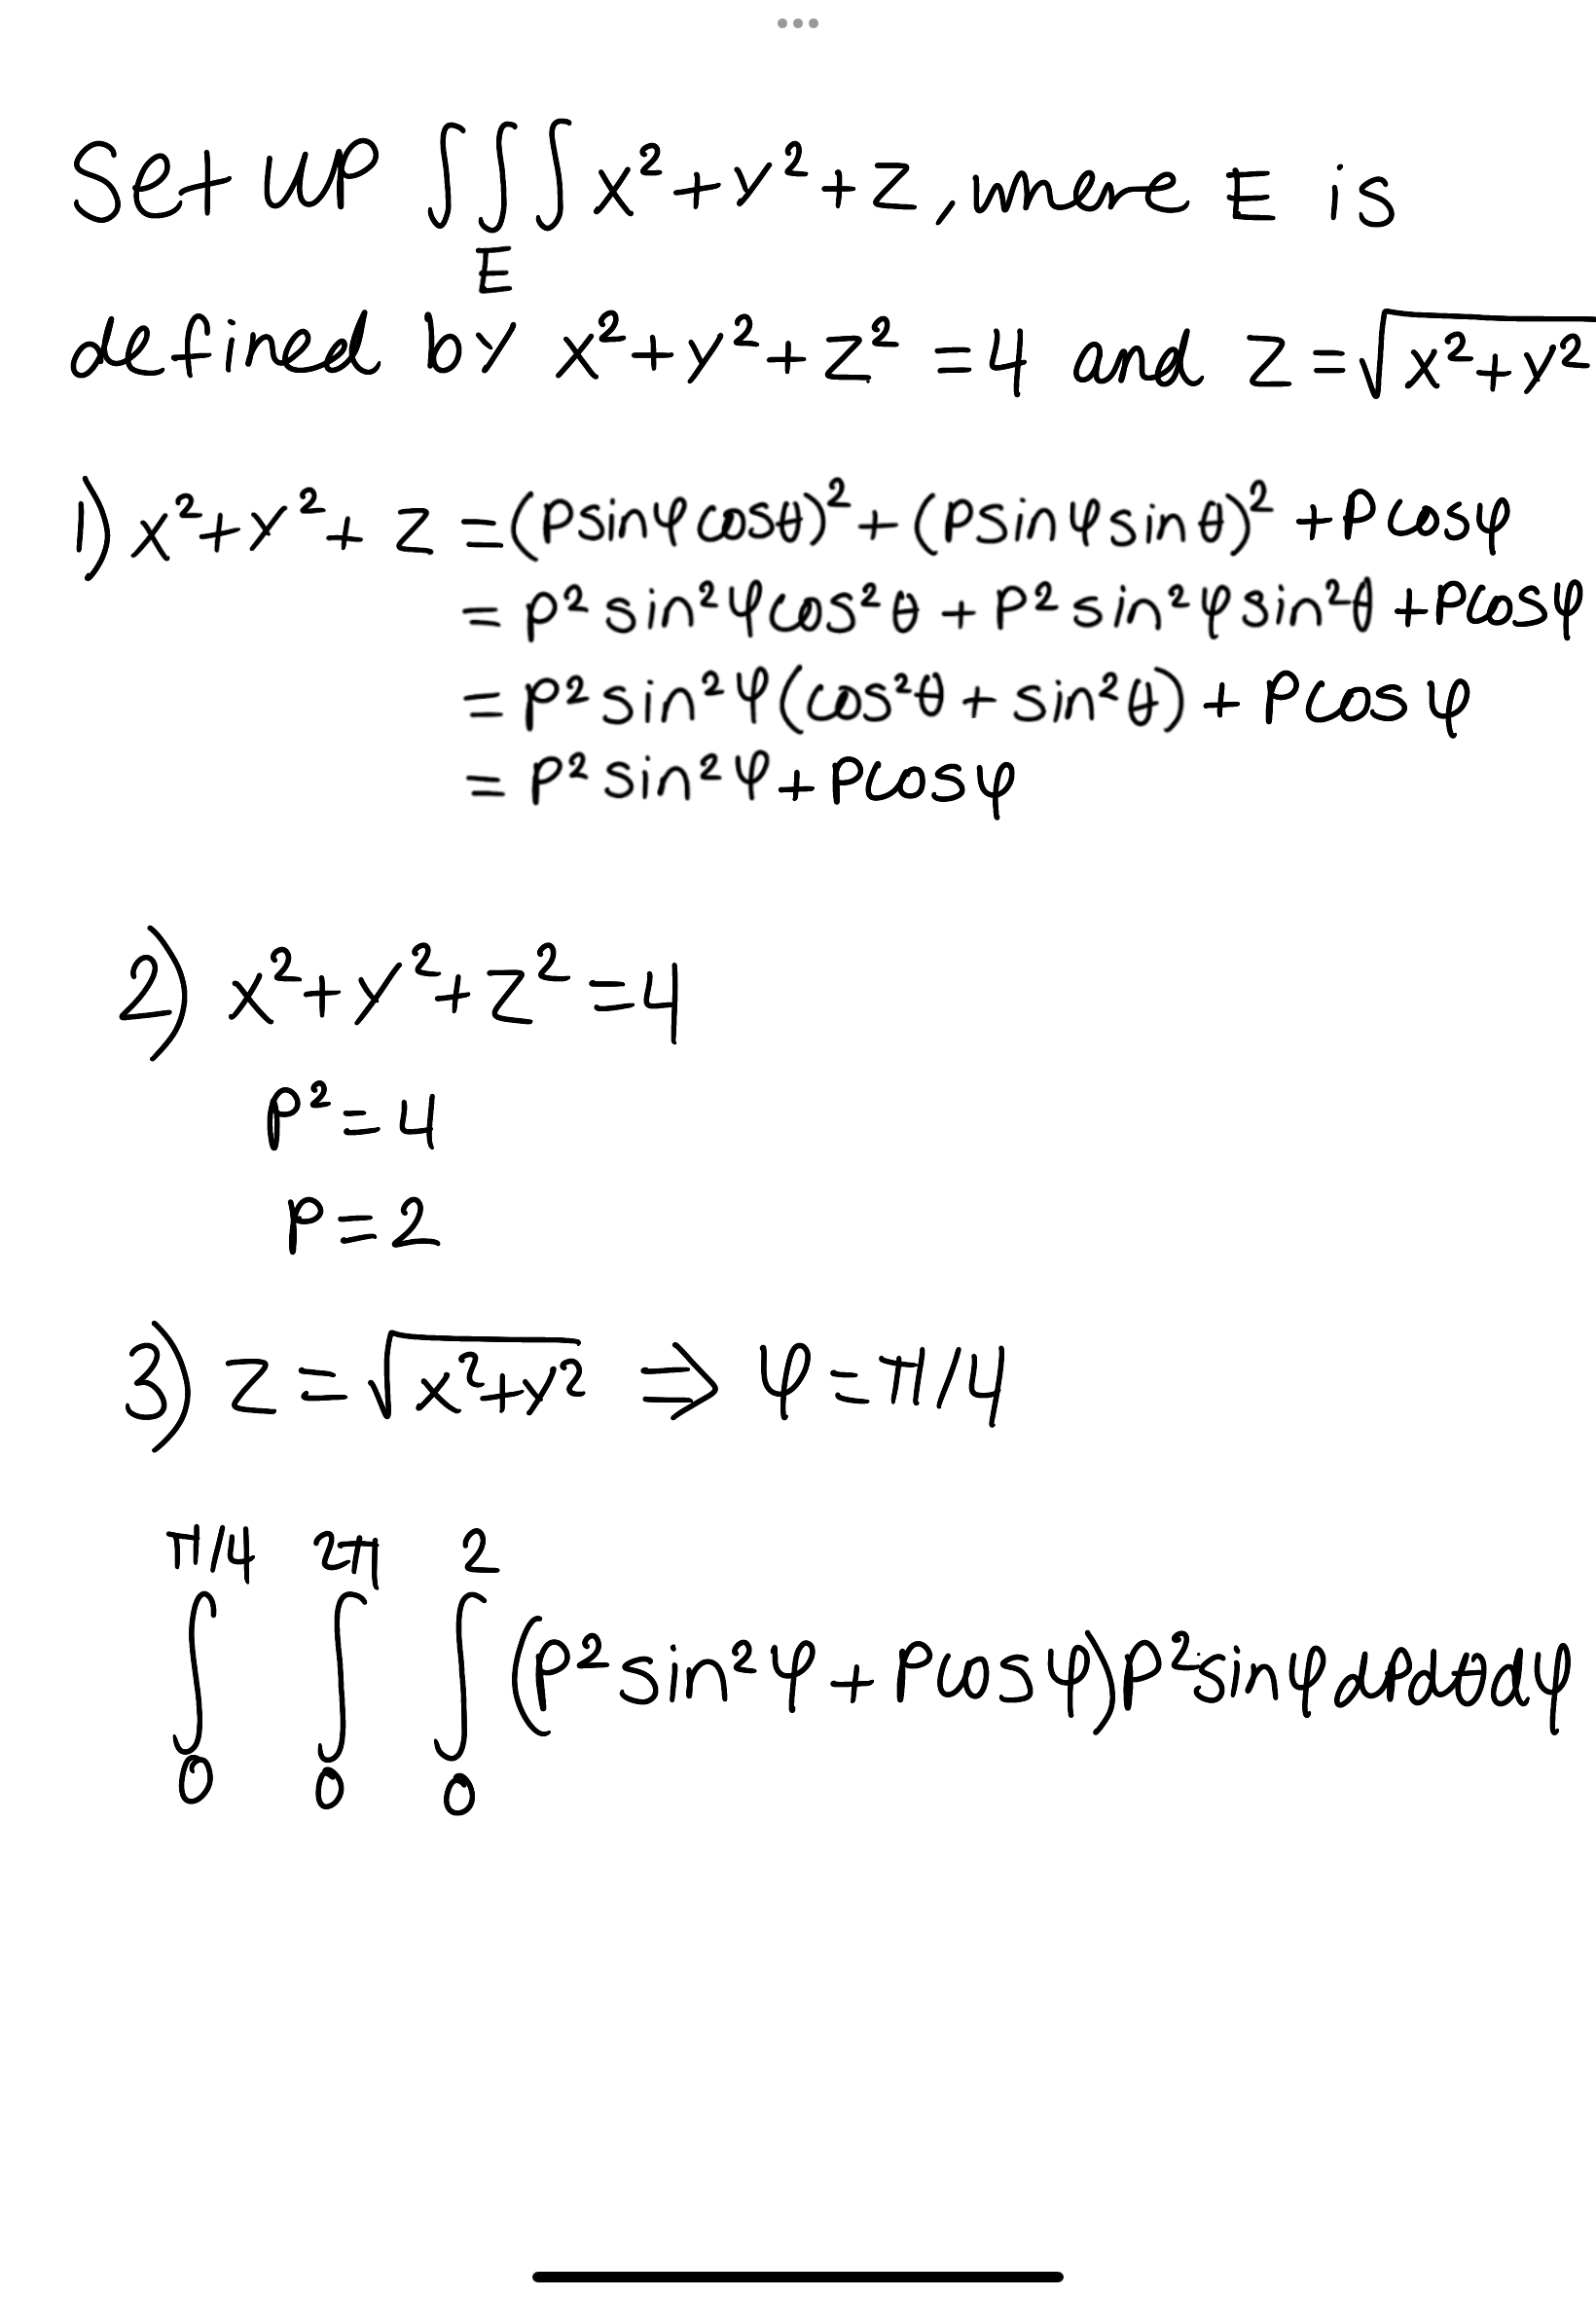 Set up ∫∫∫ x²+y²+z, where E is
E
defined by x²+y²+z² = 4 and z = √x²+y²
1) x²+y²+z = (ρsinφcosθ)² + (ρsinφsinθ)² + ρcosφ
= ρ²sin²φcos²θ + ρ²sin²φsin²θ + ρcosφ
= ρ²sin²φ(cos²θ + sin²θ) + ρcosφ
= ρ²sin²φ + ρcosφ
2) x²+y²+z² = 4
ρ² = 4
ρ = 2
3) z = √x²+y² ⇒ φ = π/4
π/4 2π 2
∫ ∫ ∫ (ρ²sin²φ + ρcosφ)ρ²sinφdρdθdφ
0 0 0